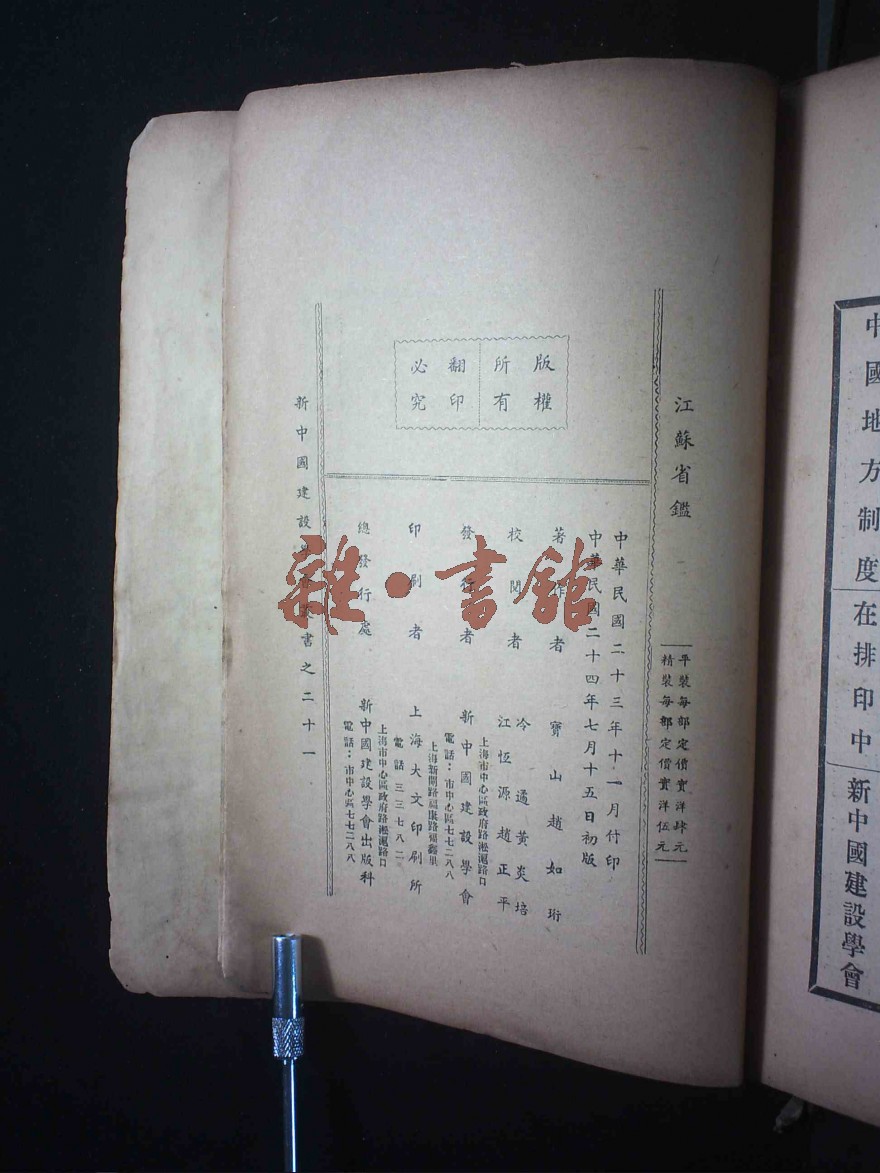 中國地方制度 在排印中 新中國建設學會
江蘇省鑑
平裝每部定價實洋肆元
精裝每部定價實洋伍元
版權
所有
翻印
必究
中華民國二十三年十一月付印
中華民國二十四年七月十五日初版
著作者 寶山趙如珩
校閱者 冷遹 黃炎培
江恆源 趙正平
發行者 新中國建設學會
上海市中心區政府路淞滬路口
電話：市中心區七七二八八
印刷者 上海大文印刷所
上海新閘路福康路
電話 三三七八二
總發行處 新中國建設學會出版科
上海市中心區政府路淞滬路口
電話：市中心區七七二八八
新中國建設學會叢書之二十一
雜·書館